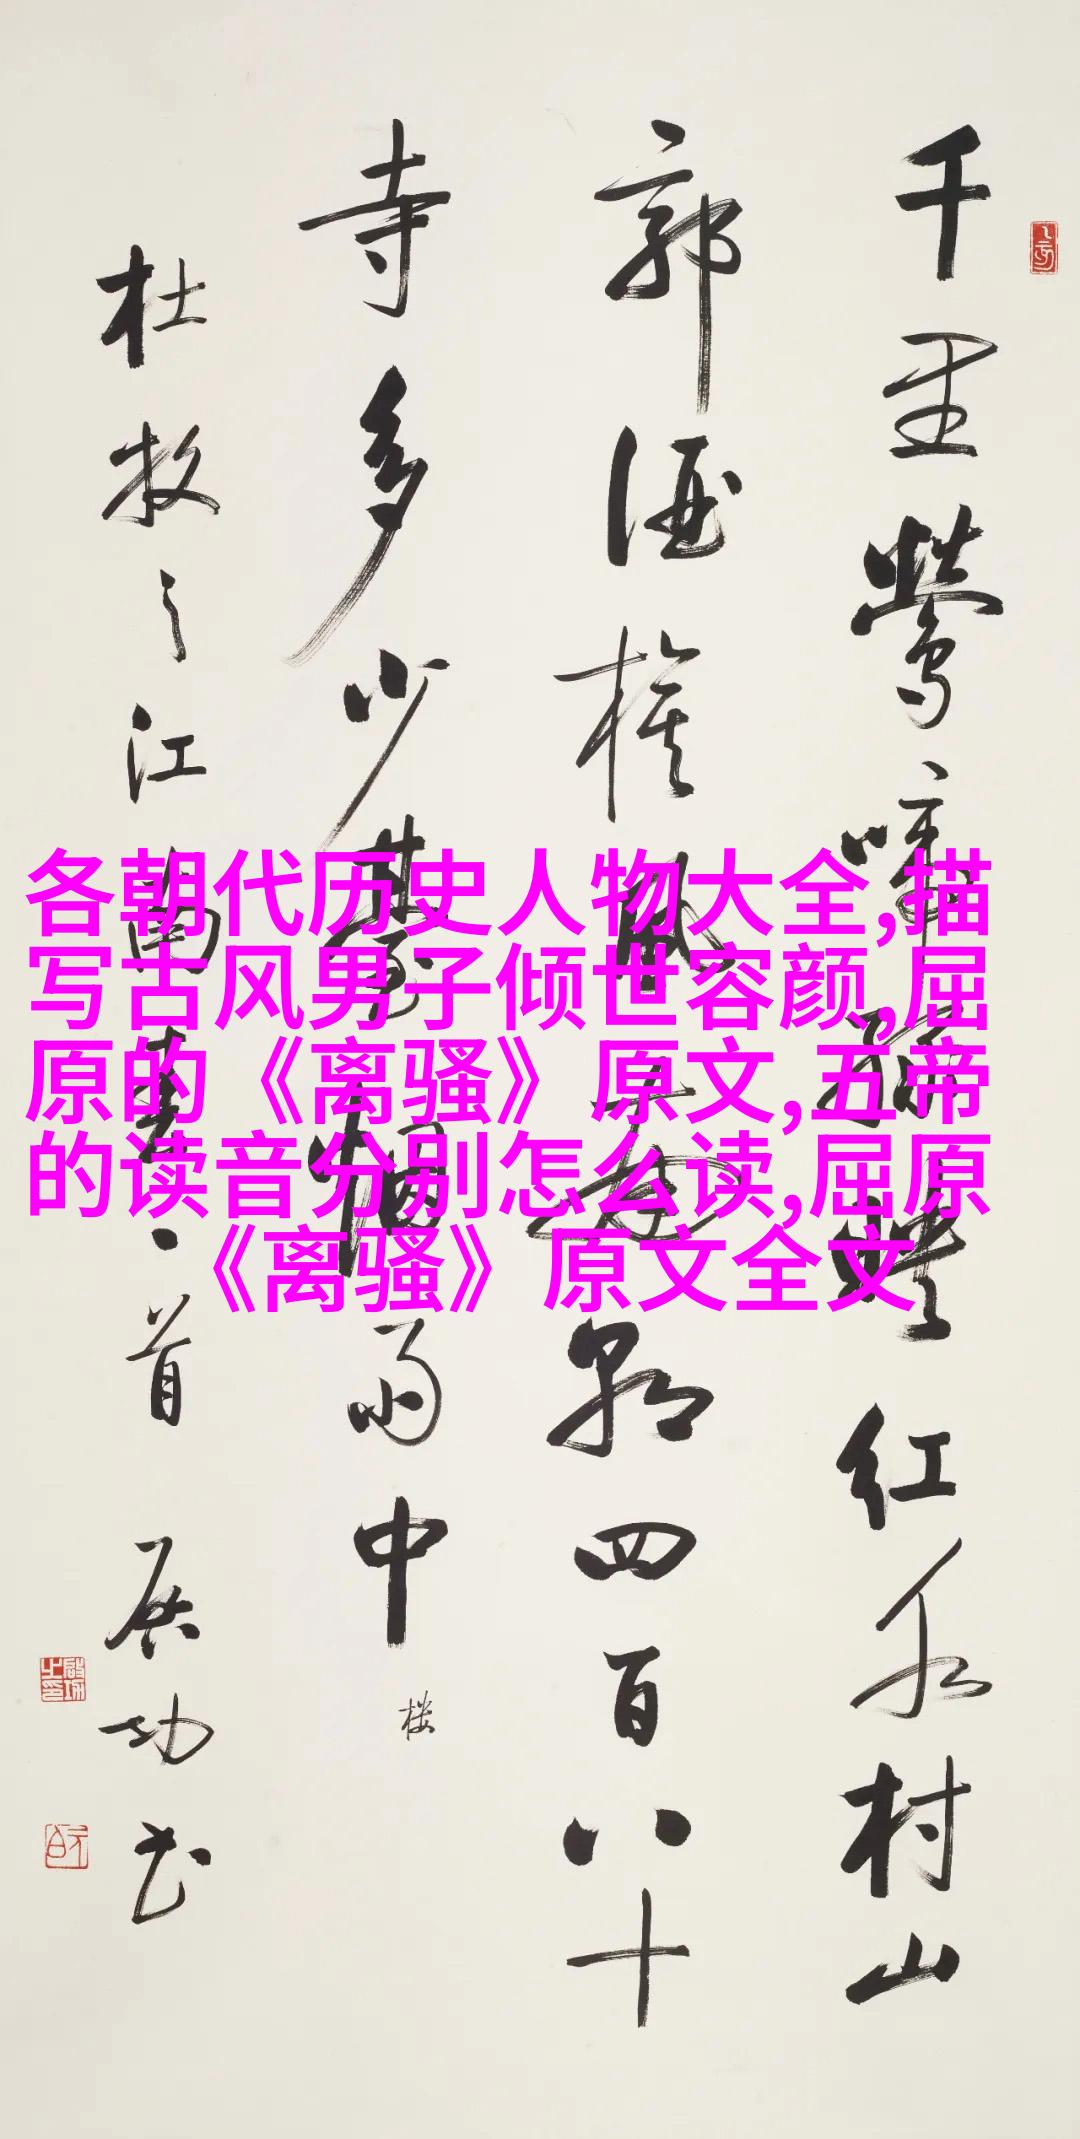 千里鶯啼緑暎红水村山
郭酒旗風南朝四百八十
寺多少臺烟雨中
楼
杜牧之江南春一首 启功书
各朝代历史人物大全,描
写古风男子倾世容颜,屈
原的《离骚》原文,五帝
的读音分别怎么读,屈原
《离骚》原文全文